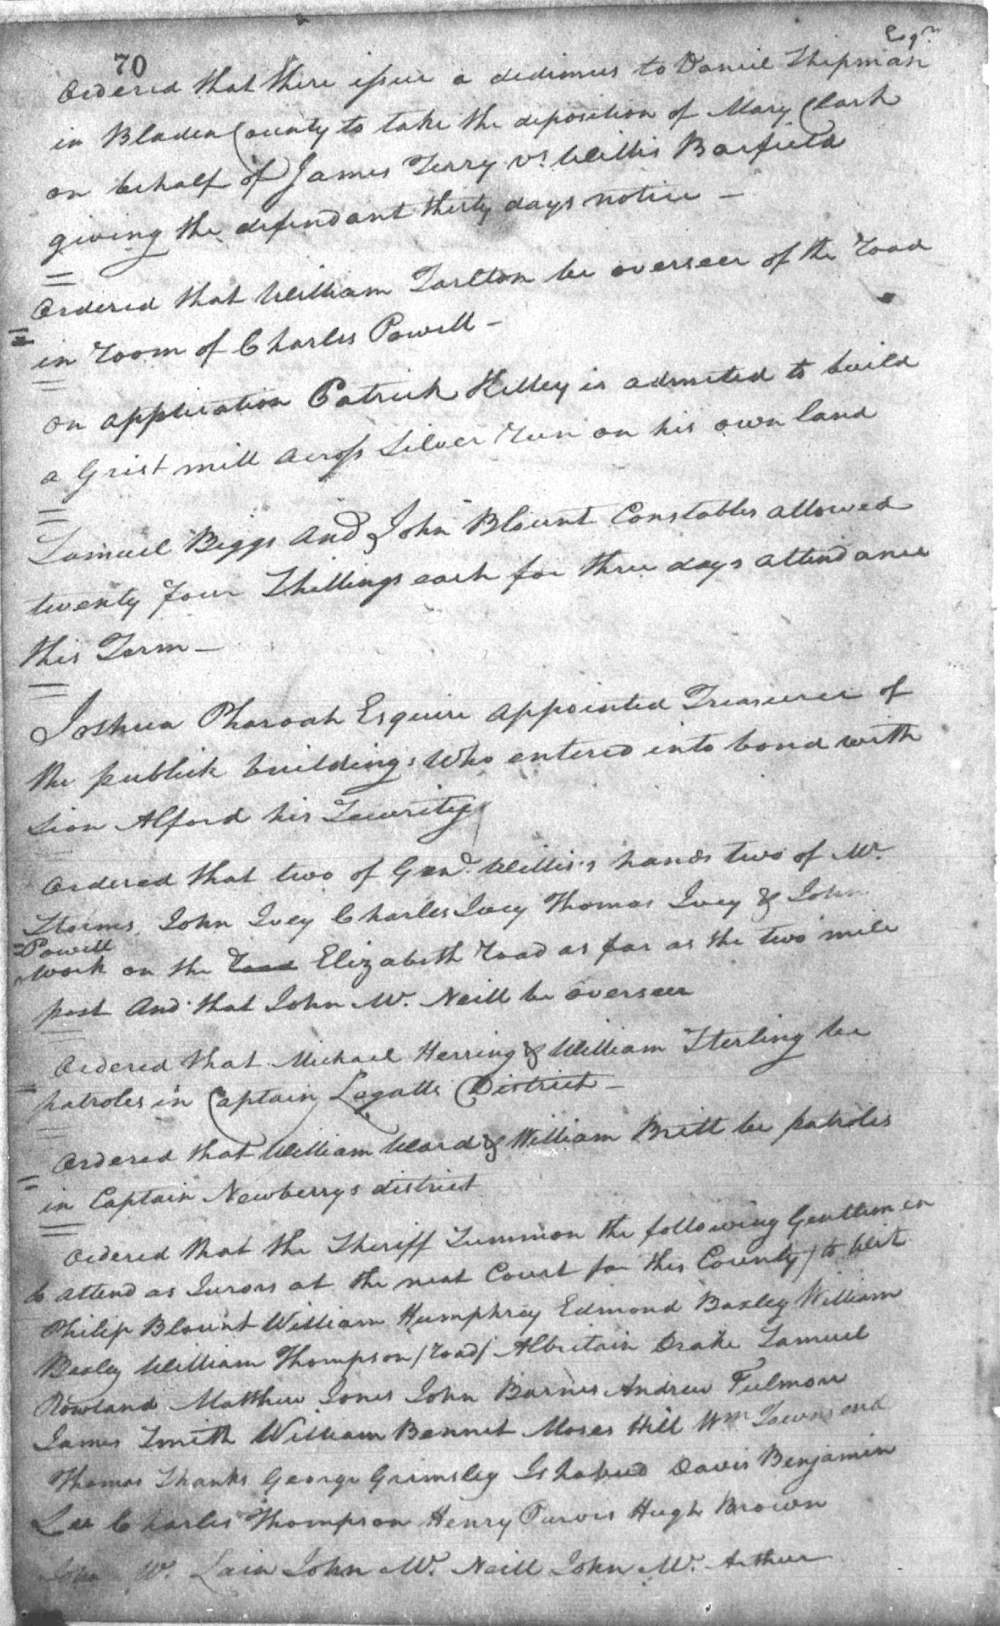 70
Esqr
Ordered that there issue a dedimus to Daniel Shipman
in Bladen County to take the deposition of Mary Clark
on behalf of James Terry vs Willis Barfield
giving the defendant thirty days notice –
Ordered that William Tarlton be overseer of the road
in room of Charles Powell –
On application Patrick Kelley is admitted to build
a Grist mill across Silver Run on his own land
Samuel Biggs and John Blount Constables allowed
twenty four Shillings each for three days attendance
this Term –
Joshua Pharoah Esquire appointed Treasurer of
the publick buildings Who entered into bond with
Sion Alford his Security
Ordered that two of Genl. Willis's hands two of Mr.
Storms, John Ivey Charles Ivey Thomas Ivey & John
Powell
work on the Road Elizabeth road as far as the two mile
post And that John Mc. Neill be overseer
Ordered that Michael Herring & William Sterling be
patroles in Captain Legatts District –
Ordered that William Ward & William Britt be patroles
in Captain Newberrys district
Ordered that the Sheriff Summon the following Gentlemen
to attend as Jurors at the next Court for this County / to Wit
Philip Blount William Humphrey Edmond Baxley William
Baxley William Thompson /road/ Albritain Drake Samuel
Rowland Matthew Jones John Barnes Andrew Fulmore
James Smith William Bennet Moses Hill Wm Townsend
Thomas Shanks George Grimsley Ichabud Davis Benjamin
Lee Charles Thompson Henry Purvis Hugh Brown
John Mc. Lain John Mc. Neill John Mc. Arthur